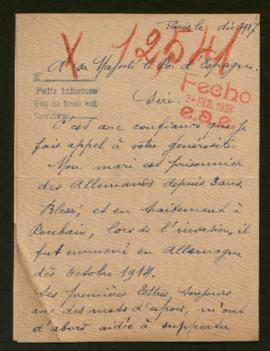 Paris le déc 1917
X 12541
A sa Majesté le Roi d'Espagne.
Pedir informes
Fecho
2-FEB. 1918
e.a.e.
Sire.
C'est avec confiance que je
fais appel à votre générosité.
Mon mari est prisonnier
des Allemands depuis 3 ans.
Blessé, et en traitement à
Roubaix, lors de l'invasion, il
fut emmené en Allemagne
dès octobre 1914.
Ses premières lettres toujours
avec des mots d'espoir, m'ont
d'abord aidée à supporter